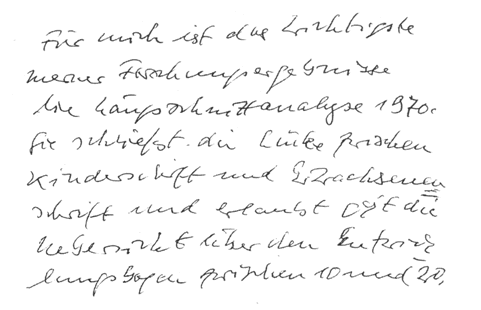 Für mich ist das Wichtigste
meiner Forschungsergebnisse
die Längsschnittanalyse 1970.
Sie schließt die Lücke zwischen
Kinderschrift und Erwachsenen
schrift und erlaubt die
Uebersicht über den Entwick
lungsbogen zwischen 10 und 20.